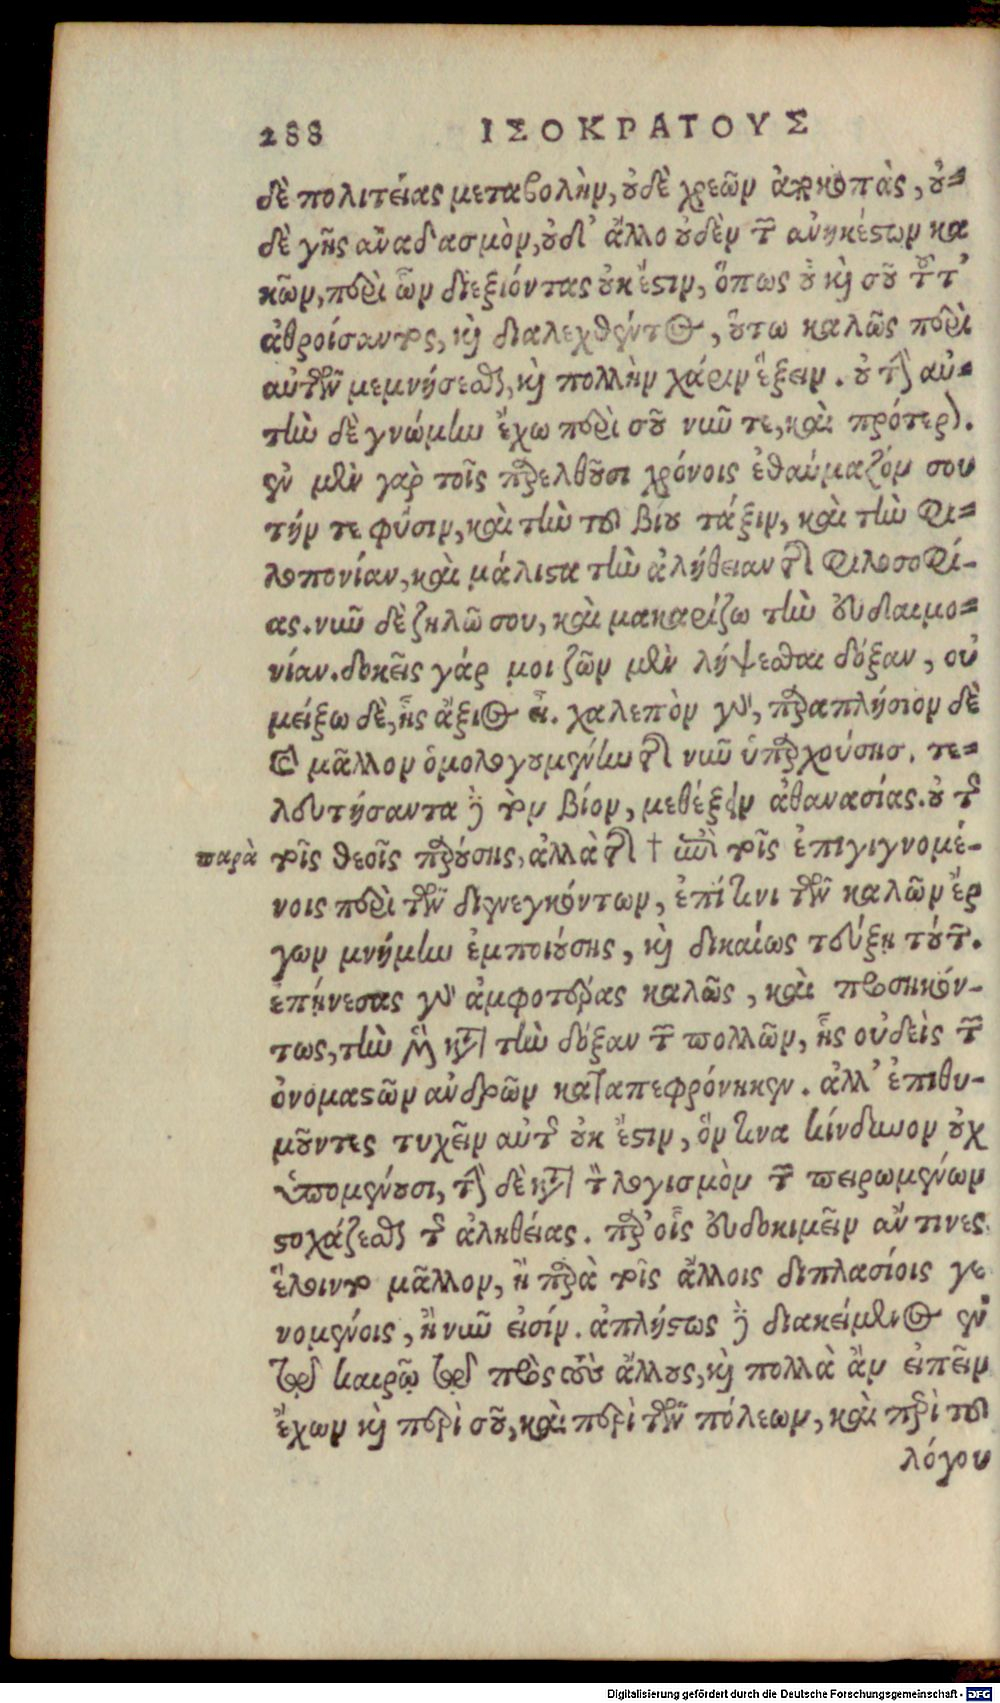 288 ΙΣΟΚΡΑΤΟΥΣ
δὲ πολιτείας μεταβολὴν, οὐδὲ χρεῶν ἀποκοπὰς, οὐ-
δὲ γῆς ἀναδασμὸν, οὐδ' ἄλλο οὐδὲν τῶν ἀνηκέστων κα
κῶν, περὶ ὧν διεξιόντας οὐκ ἔστιν, ὅπως οὐ καὶ σοῦ τοῦ τ'
ἀθροίσαντος, καὶ διαλεχθέντος, οὕτω καλῶς περὶ
αὐτῶν μεμνήσεσθαι, καὶ πολλὴν χάριν ἕξειν. οὐ τὴν αὐ-
τὴν δὲ γνώμην ἔχω περὶ σοῦ νῦν τε, καὶ πρότερον.
ἐν μὲν γὰρ τοῖς παρελθοῦσι χρόνοις ἐθαύμαζόν σου
τήν τε φύσιν, καὶ τὴν τοῦ βίου τάξιν, καὶ τὴν φι-
λοπονίαν, καὶ μάλιστα τὴν ἀλήθειαν τῆς φιλοσοφί-
ας. νῦν δὲ ζηλῶ σου, καὶ μακαρίζω τὴν εὐδαιμο-
νίαν. δοκεῖς γάρ μοι ζῶν μὲν λήψεσθαι δόξαν, οὐ
μείζω δὲ, ἧς ἄξιος εἶ. χαλεπὸν γὰρ, παραπλήσιον δὲ
καὶ μᾶλλον ὁμολογουμένην τῆς νῦν ὑπαρχούσης. τε-
λευτήσαντα δὲ τὸν βίον, μεθέξειν ἀθανασίας. οὐ τῆς
παρὰ τοῖς θεοῖς παρούσης, ἀλλὰ τῆς † ἐπὶ τοῖς ἐπιγιγνομέ-
νοις περὶ τῶν διενεγκόντων, ἐπί τινι τῶν καλῶν ἔρ
γων μνήμην ἐμποιούσης, καὶ δικαίως τεύξῃ τούτων.
ἐπῄνεσας γὰρ ἀμφοτέρας καλῶς, καὶ προσηκόν-
τως, τὴν μὲν κατὰ τὴν δόξαν τῶν πολλῶν, ἧς οὐδεὶς τῶν
ὀνομαστῶν ἀνδρῶν καταπεφρόνηκεν. ἀλλ' ἐπιθυ-
μοῦντες τυχεῖν αὐτῆς οὐκ ἔστιν, ὅν τινα κίνδυνον οὐχ
ὑπομένουσι, τὴν δὲ κατὰ τὸν λογισμὸν τῶν πειρωμένων
στοχάζεσθαι τῆς ἀληθείας. παρ' οἷς εὐδοκιμεῖν ἄν τινες
ἕλοιντο μᾶλλον, ἢ παρὰ τοῖς ἄλλοις διπλασίοις γε
νομένοις, ἢ νῦν εἰσίν. ἀπλήστως δὲ διακείμενος ἐν
τῷ καιρῷ τῷ πρὸς τοὺς ἄλλους, καὶ πολλὰ ἂν εἰπεῖν
ἔχων καὶ περὶ σοῦ, καὶ περὶ τῶν πόλεων, καὶ περὶ τοῦ
λόγου
Digitalisierung gefördert durch die Deutsche Forschungsgemeinschaft - DFG